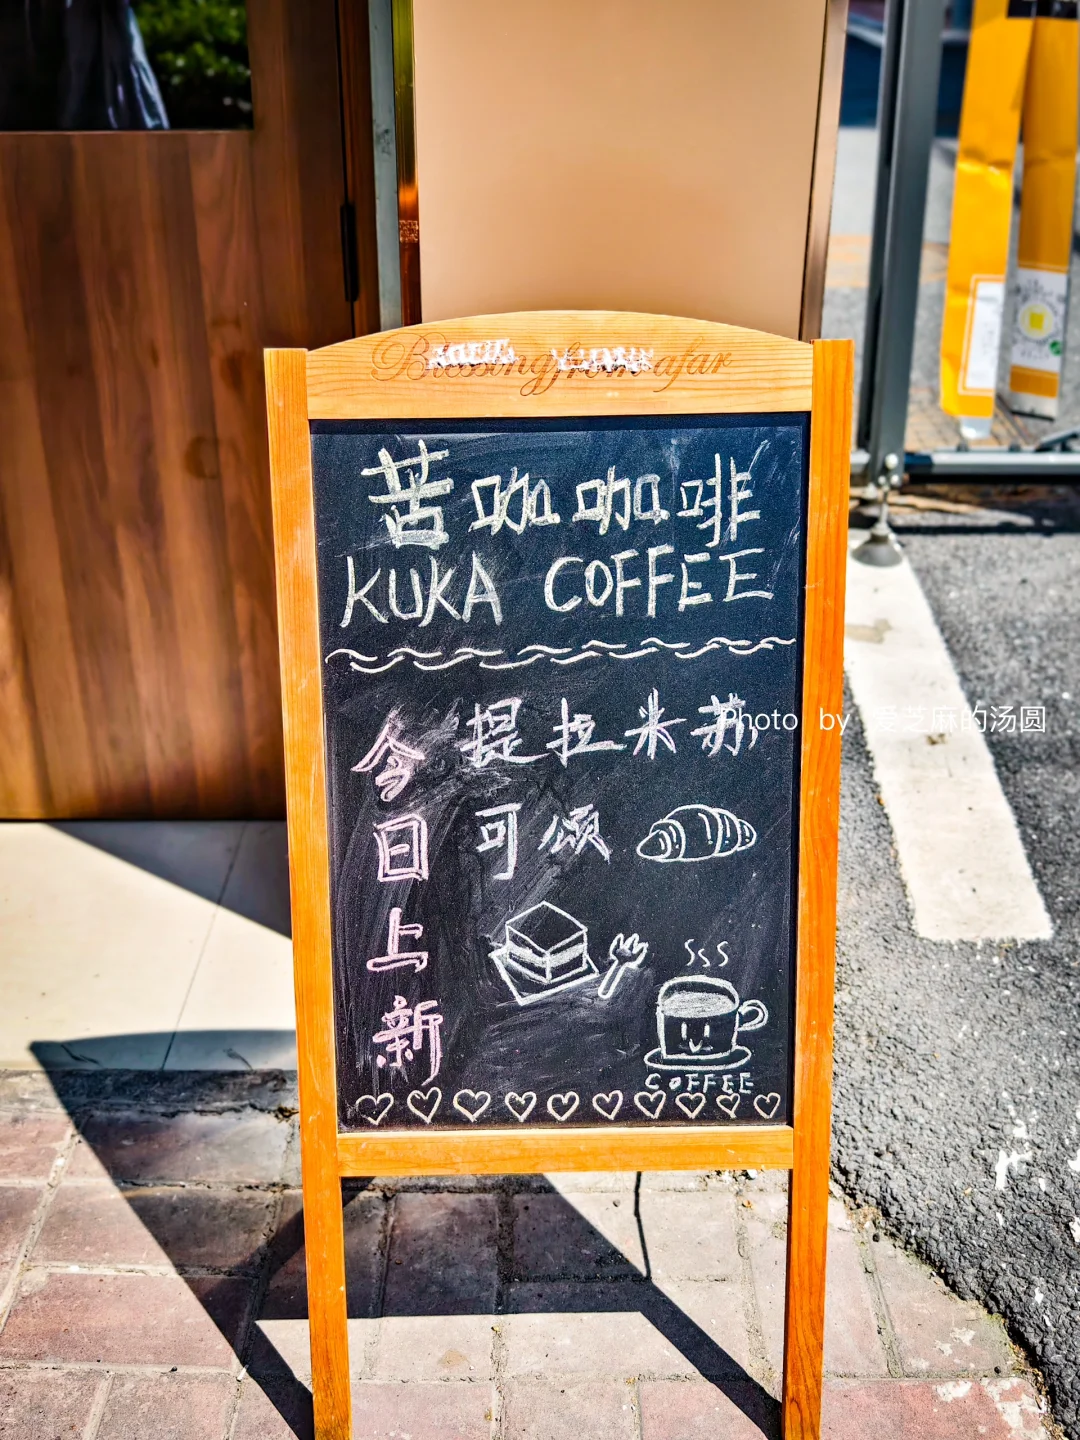 Blessing from afar
苦咖咖啡
KUKA COFFEE
今日上新
提拉米苏
可颂
COFFEE
Photo by 爱芝麻的汤圆